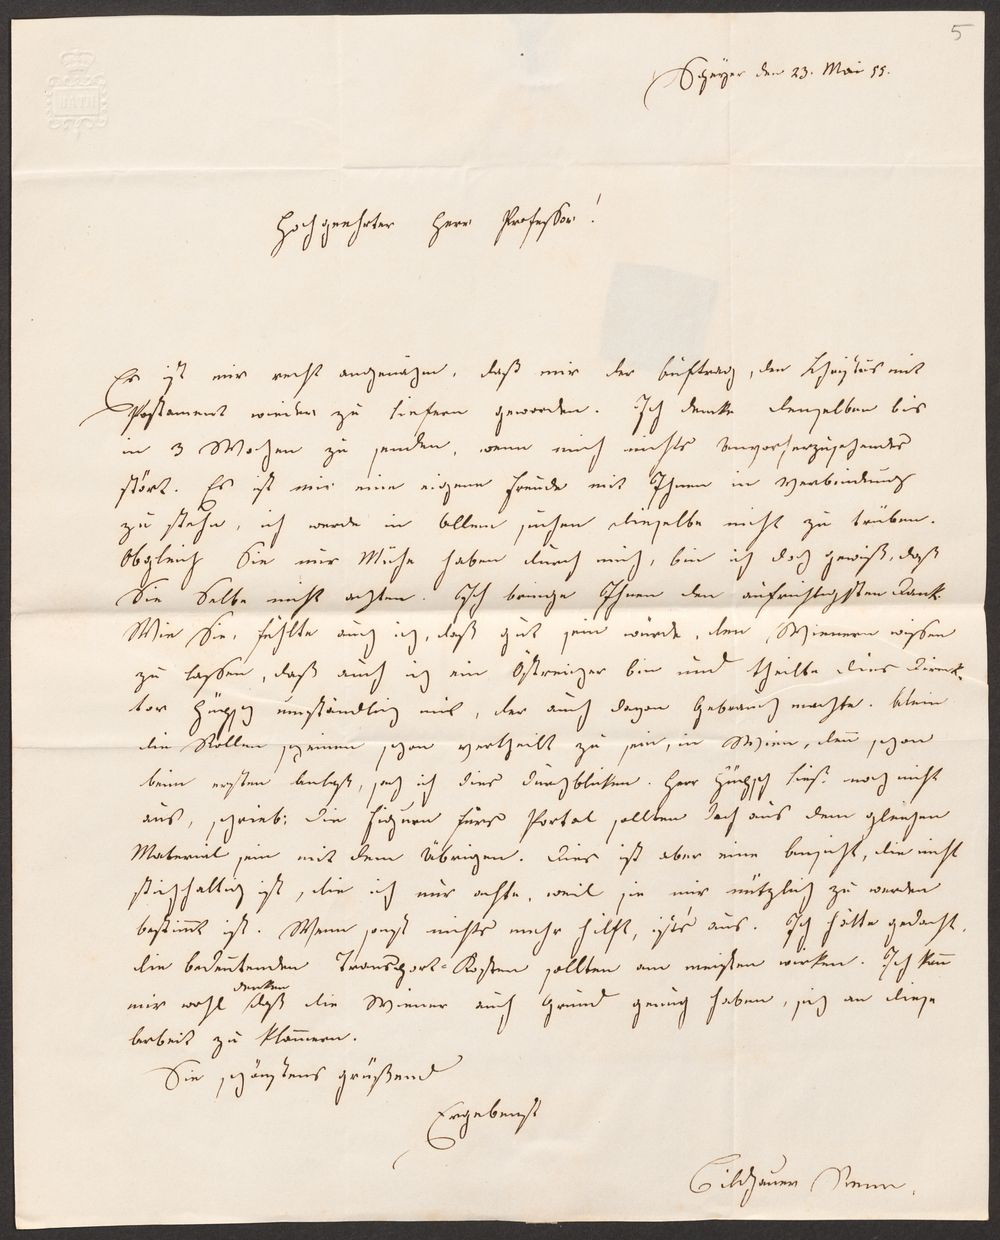 5
BATH
Speyer den 23. Mai 55.
Hochgeehrter Herr Professor!
Es ist mir recht angenehm, daß mir der Auftrag, den Christus mit
Postament wieder zu liefern geworden. Ich denke denselben bis
in 3 Wochen zu senden, wenn mich nichts Unvorherzusehendes
stört. Es ist mir eine eigene Freude mit Ihnen in Verbindung
zu stehn, ich werde in Allem suchen dieselbe nicht zu trüben.
Obgleich Sie nur Mühe haben durch mich, bin ich doch gewiß, daß
Sie Selbe nicht achten. Ich bringe Ihnen den aufrichtigsten Dank.
Wie Sie, fühlte auch ich, daß gut sein würde, den Wienern wissen
zu lassen, daß auch ich ein Östreicher bin und theilte dies Direk-
tor Hübsch umständlich mit, der auch davon Gebrauch machte. Allein
die Rollen scheinen schon vertheilt zu sein, in Wien, den̄ schon
beim ersten Anlaß, sah ich dies durchbliken. Herr Hübsch ließ noch nicht
aus, schrieb: die Figuren fürs Portal sollten doch aus dem gleichen
Material sein mit dem Übrigen. Dies ist aber eine Ansicht, die nicht
stichhaltig ist, die ich nur achte, weil sie mir nützlich zu werden
bestim̄t ist. Wenn sonst nichts mehr hilft, ist's aus. Ich hätte gedacht,
die bedeutenden Transport-Kosten sollten am meisten wirken. Ich kan̄
denken
mir wohl daß die Wiener auch Grund genug haben, sich an diese
Arbeit zu klam̄ern.
Sie schönstens grüßend
Ergebenst
Bildhauer Renn.